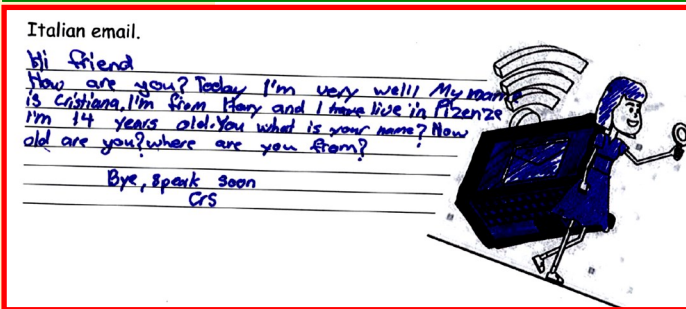 Italian email.
Hi friend
How are you? Today I'm very well! My name
is Cristiana, I'm from Itary and I have live in Fizenze
I'm 14 years old. You what is your name? How
old are you? where are you from?
Bye, speak soon
CrS